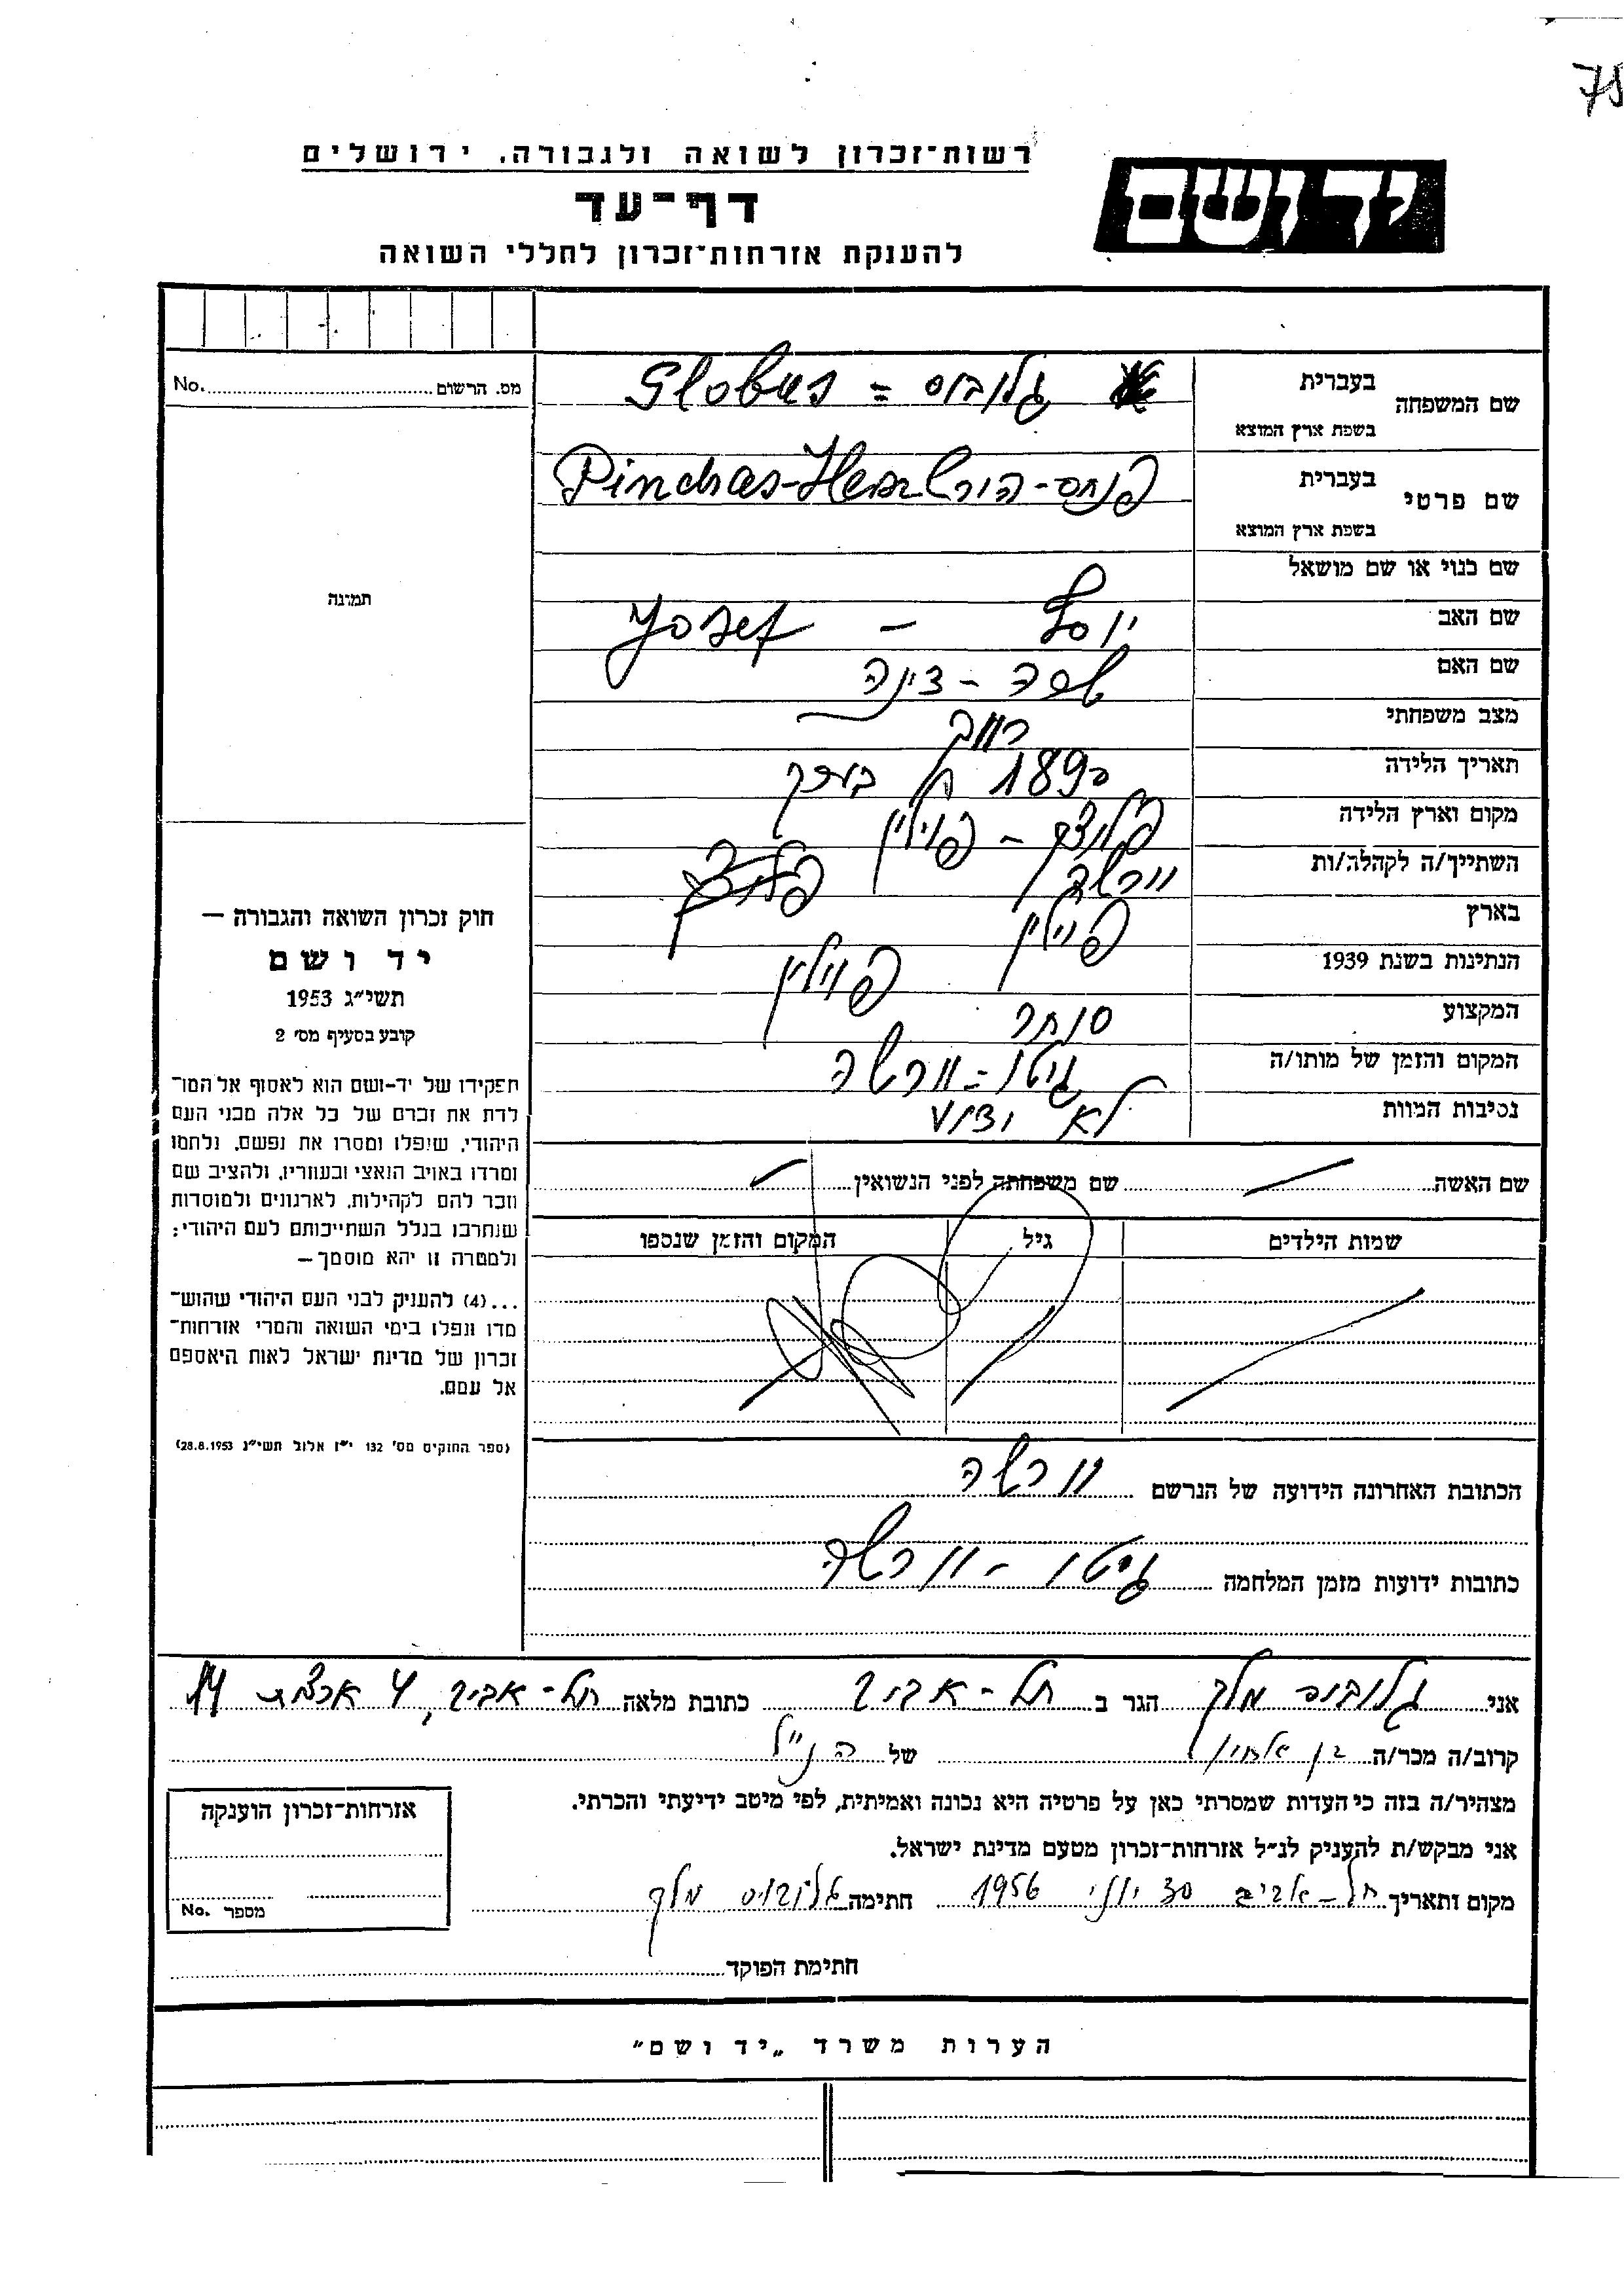 75
רשות־זכרון לשואה ולגבורה, ירושלים
יד ושם
דף־עד
להענקת אזרחות־זכרון לחללי השואה
מס. הרשום No.
שם המשפחה בעברית גלובוס = Globus
בשפת ארץ המוצא
שם פרטי בעברית פנחס-הרש Pinchas-
בשפת ארץ המוצא
שם כנוי או שם מושאל
תמונה
שם האב יוסף - Josef
שם האם
מצב משפחתי רווק
תאריך הלידה 1890
מקום וארץ הלידה פלוצק - פוילין
השתייך/ה לקהלה/ות וורשה
בארץ פוילין
הנתינות בשנת 1939 פוילין
המקצוע סוחר
המקום והזמן של מותו/ה גיטו - וורשה
נסיבות המוות לא ידוע
חוק זכרון השואה והגבורה —
יד ושם
תשי״ג 1953
קובע בסעיף מס׳ 2
תפקידו של יד-ושם הוא לאסוף אל המו־
לדת את זכרם של כל אלה מבני העם
היהודי, שנפלו ומסרו את נפשם, נלחמו
ומרדו באויב הנאצי ובעוזריו, ולהציב שם
וזכר להם לקהילות, לארגונים ולמוסדות
שנחרבו בגלל השתייכותם לעם היהודי;
ולמטרה זו יהא מוסמך—
...(4) להעניק לבני העם היהודי שהוש־
מדו ונפלו בימי השואה והמרי אזרחות־
זכרון של מדינת ישראל לאות היאספם
אל עמם.
(ספר החוקים מס׳ 132 י״ז אלול תשי״ג 28.8.1953)
שם האשה שם משפחתה לפני הנשואין
שמות הילדים גיל המקום והזמן שנספו
הכתובת האחרונה הידועה של הנרשם וורשה
כתובות ידועות מזמן המלחמה גיטו - וורשה
אני גלובוס מלך הגר ב תל-אביב כתובת מלאה תל-אביב, 14
קרוב/ה מכר/ה בן אחיו של הנ״ל
מצהיר/ה בזה כי העדות שמסרתי כאן על פרטיה היא נכונה ואמיתית, לפי מיטב ידיעתי והכרתי.
אני מבקש/ת להעניק לנ״ל אזרחות־זכרון מטעם מדינת ישראל.
מקום ותאריך תל-אביב 30 יוני 1956 חתימה גלובוס מלך
אזרחות־זכרון הוענקה
מספר No.
חתימת הפוקד
הערות משרד „יד ושם״